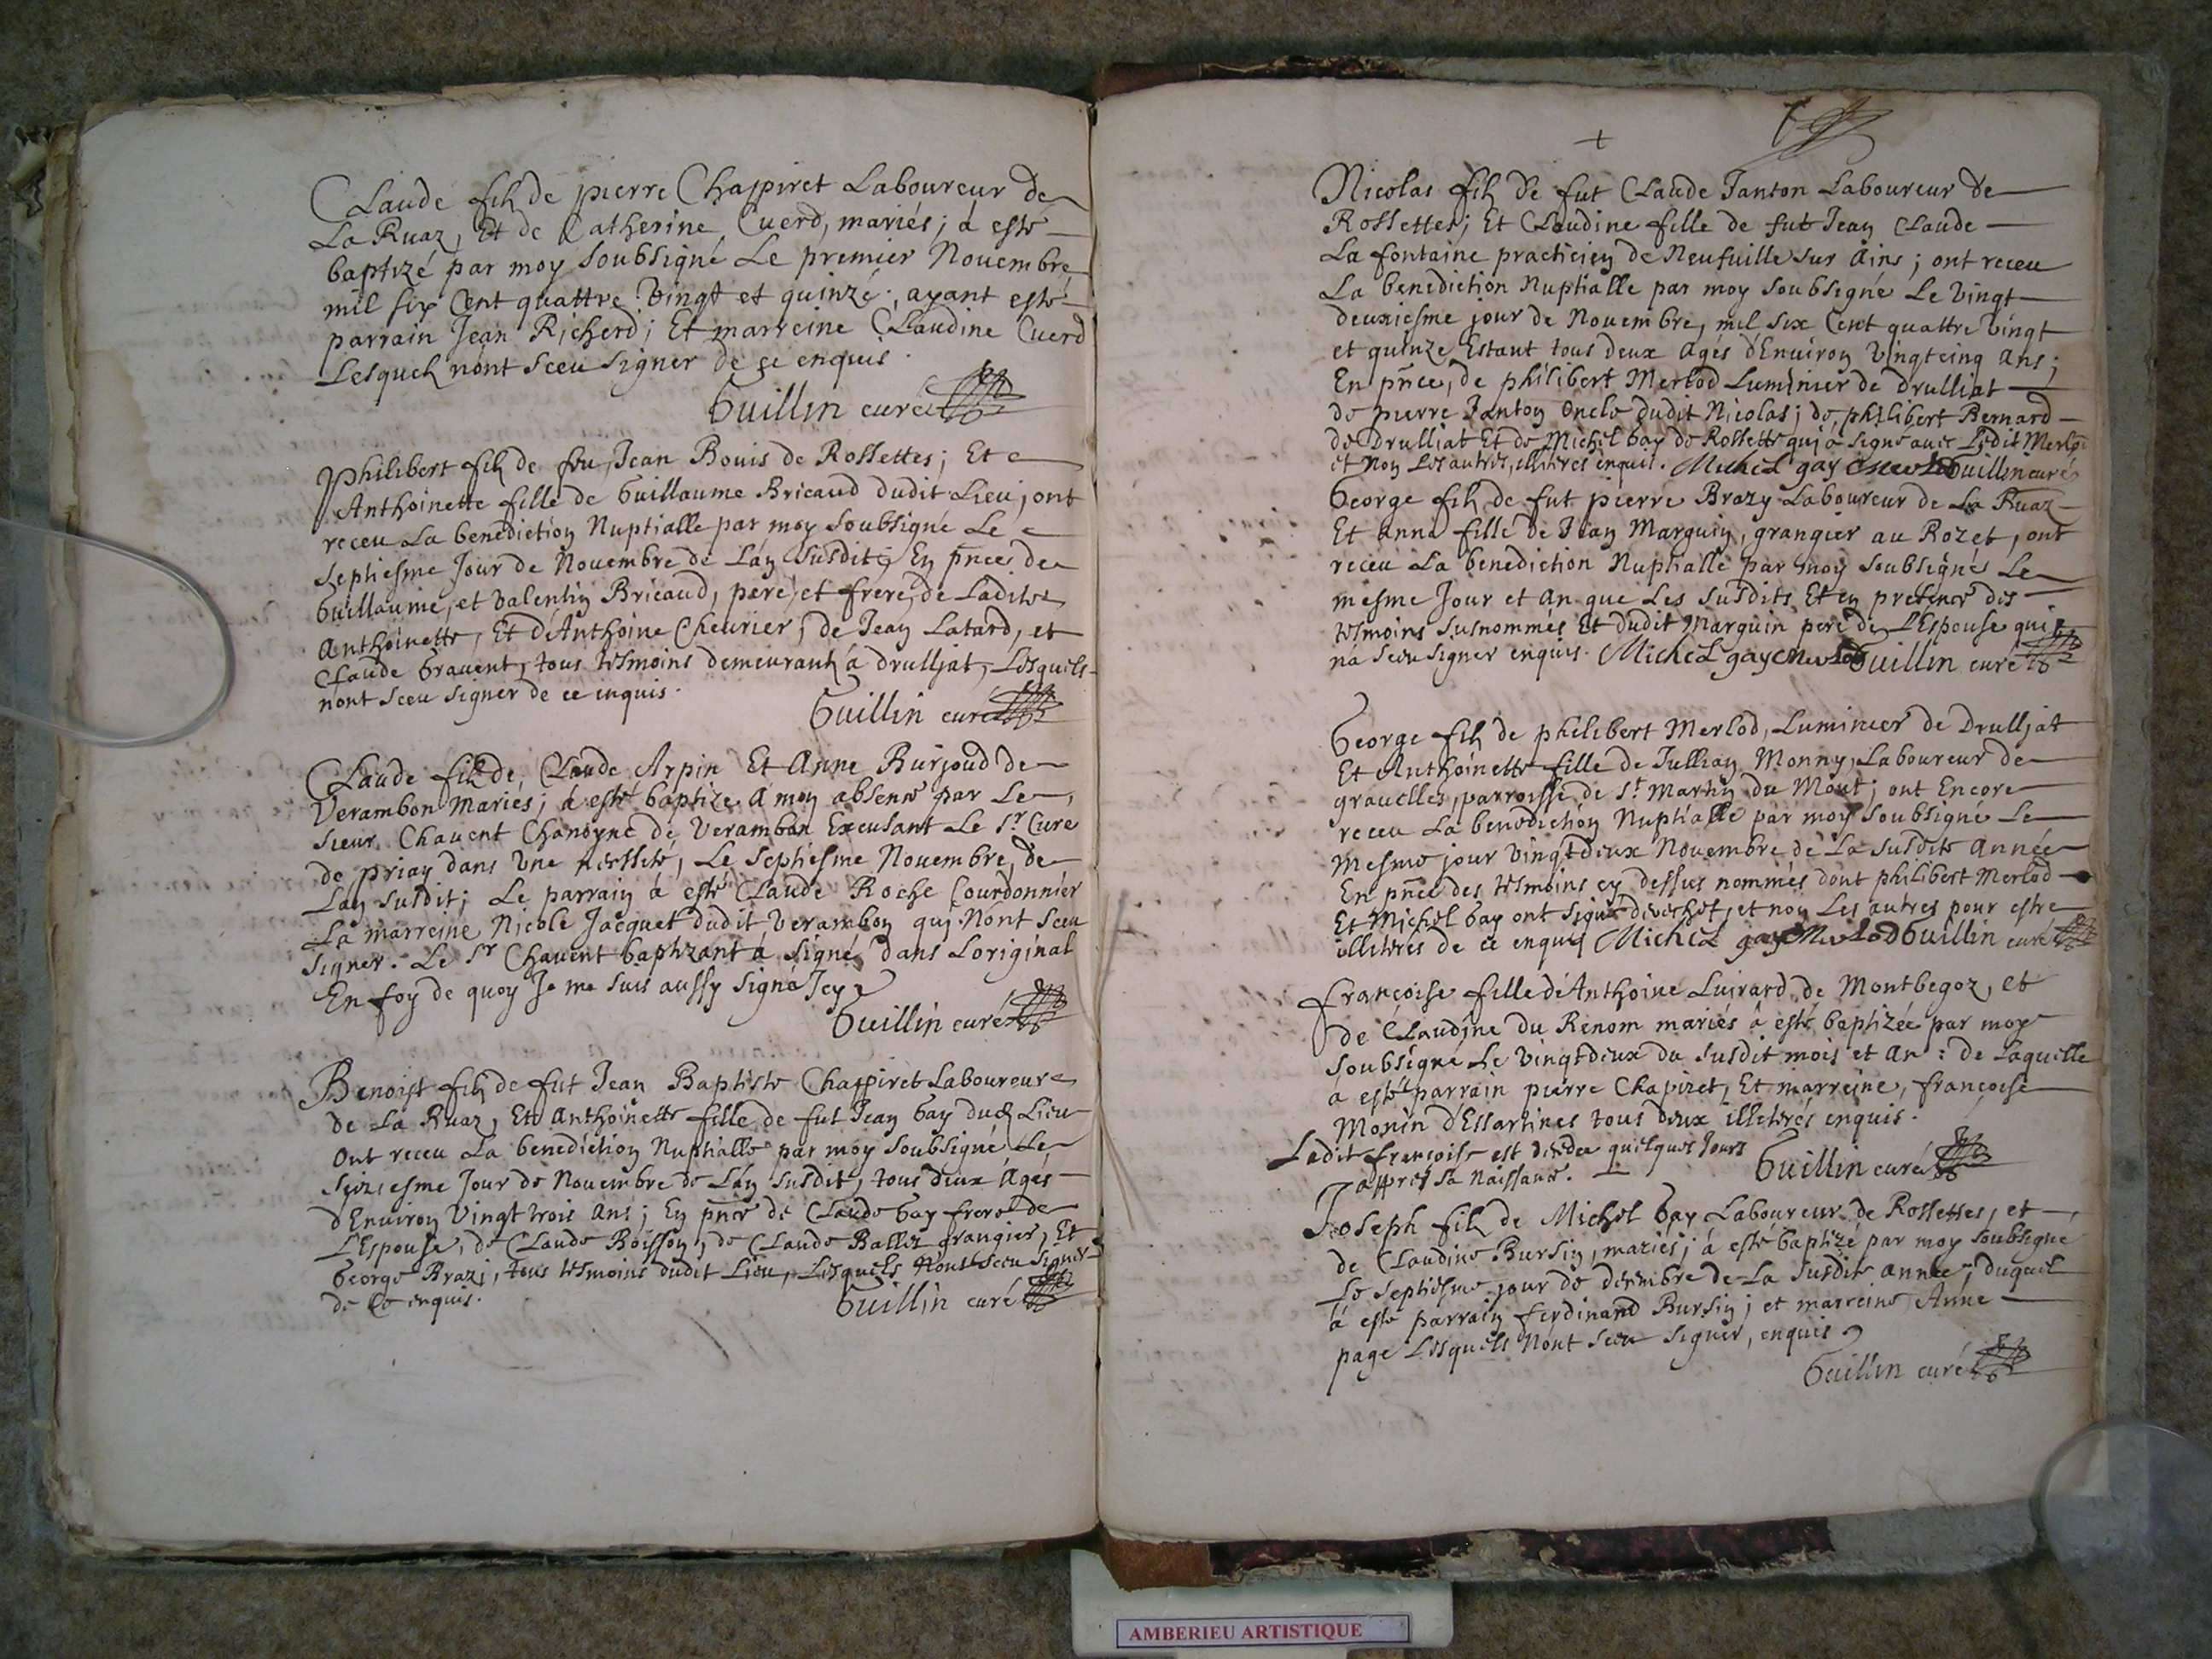 Claude fils de pierre Chappiret Laboureur de
La Ruaz, Et de Catherine Cuerd, mariés; à esté
baptizé par moy soubsigné Le premier Nouembre
mil six Cent quattre Vingt et quinze; ayant esté
parrain Jean Richerd; Et marreine Claudine Cuerd
Lesquels nont sceu signer de ce enquis.
Guillin curé
Philibert fils de feu Jean Bouis de Rossettes; Et
Anthoinette fille de Guillaume Bricaud dudit Lieu; ont
receu La benediction Nuptialle par moy soubsigné Le
septiesme Jour de Nouembre de Lan susdit; En pnce de
Guillaume, et Valentin Bricaud, pere, et frere, de Ladite
Anthoinette, Et d'Anthoine Cheurier, de Jean Latard, et
Claude Grauent, tous tesmoins demeurants à drulliat, Lesquels
nont sceu signer de ce enquis.
Guillin curé
Claude fils de Claude Arpin Et Anne Burjoud de
Verambon Mariés; à esté baptize a moy absent par Le
sieur Chauent Chanoyne de Verambon Excusant Le Sr Cure
de priay dans Vne necessité, Le septiesme Nouembre, de
Lan susdit; Le parrain à esté Claude Roche Courdonnier
La marreine Nicole Jacquet dudit Verambon qui Nont sceu
signer. Le Sr Chauent baptizant a signé dans Loriginal
En foy de quoy Je me suis aussy signé Icy
Guillin curé
Benoist fils de fut Jean Baptiste Chappiret Laboureur
de La Ruaz, Et Anthoinette fille de fut Jean Gay dud Lieu
Ont receu La benediction Nuptialle par moy soubsigné Le
seiziesme Jour de Nouembre de Lan susdit, tous deux Agés
d'Enuiron Vingt trois Ans; En pnce de Claude Gay frere de
L'Espouse, de Claude Boisson, de Claude Ballet grangier, Et
George Brazi, tous tesmoins dudit Lieu, Lesquels Nont sceu signer
de Ce enquis.
Guillin curé
Nicolas fils de fut Claude Janton Laboureur de
Rossettes; Et Claudine fille de fut Jean Claude
La fontaine practicien de Neufuille sur Ains; ont receu
La benediction Nuptialle par moy soubsigné Le Vingt
deuxiesme jour de Nouembre, mil six Cent quattre Vingt
et quinze Estant tous deux Agés d'Enuiron Vingtcinq Ans;
En pnce, de philibert Merlod Luminier de Drulliat
de pierre Janton Oncle dudit Nicolas; de philibert Bernard
de Drulliat Et de Michel Gay de Rossette qui à signé auec Ledit Merlod
et Non Les autres, illiteres enquis. Michel gay Merlod Guillin curé
George fils de fut pierre Brazy Laboureur de La Ruaz
Et Anna fille de Jean Marguin, grangier au Rozet, ont
receu La benediction Nuptialle par moy soubsigné Le
mesme Jour et An que Les susdits Et en presence des
tesmoins susnommés Et dudit Marguin pere de L'Espouse qui
n'a sceu signer enquis. Michel gay Merlod Guillin curé
George fils de philibert Merlod, Luminier de Drulljat
Et Anthoinette fille de Jullian Monny, Laboureur de
grauelles, parroisse de St Martin du Mont; ont Encore
receu La benediction Nuptialle par moy soubsigné Le
Mesme jour Vingtdeux Nouembre de La susdite Année
En pnce des tesmoins cy dessus nommés dont philibert Merlod
Et Michel Gay ont signé derechef, et non Les autres pour estre
illiteres de ce enquis Michel gay Merlod Guillin curé
françoise fille d'Anthoine Luirard de Montbegoz, et
de Claudine du Renom mariés à esté baptizée par moy
soubsigné Le Vingtdeux du susdit mois et An: de Laquelle
à esté parrain pierre Chapiret, Et marreine, françoise
Monin d'Essartines tous deux illiteres enquis.
Ladit françoise est dcedee quelques Jours
appres sa Naissance.
Guillin curé
Joseph fils de Michel Gay Laboureur de Rossettes, et
de Claudine Bursin, mariés; à esté baptizé par moy soubsigné
Le septiesme jour de decembre de La susdite année; duquel
à esté parrain ferdinand Bursin; et marreine Anne
page Lesquels Nont sceu signer, enquis
Guillin curé
AMBERIEU ARTISTIQUE